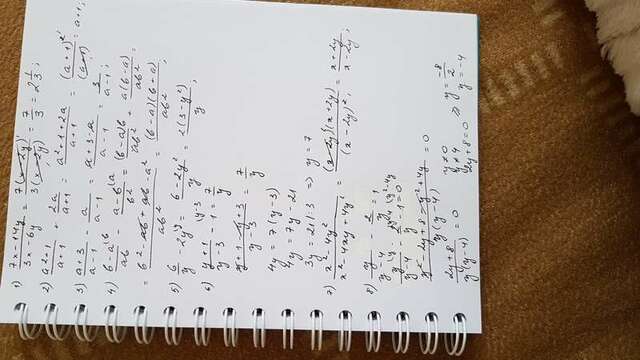 1) (7x-14y)/(3x-6y) = 7(x-2y)/3(x-2y) = 7/3 = 2 1/3;
2) (a²+1)/(a+1) + 2a/(a+1) = (a²+1+2a)/(a+1) = (a+1)²/(a+1) = a+1;
3) (a+3)/(a-1) - a/(a-1) = (a+3-a)/(a-1) = 3/(a-1);
4) (b-a)/(ab) \b - (a-b)/(b²) \a = (b-a)b/(ab²) + a(b-a)/(ab²) =
= (b²-ab+ab-a²)/(ab²) = (b-a)(b+a)/(ab²);
5) 6/y - 2y \y = (6-2y²)/y = 2(3-y²)/y;
6) (y+1)/(y-3) - 1 \y-3 = 7/y
(y+1-y+3)/(y-3) = 7/y
4y = 7(y-3)
4y = 7y-21
3y = 21 |:3 ⇒ y = 7
7) (x²-4y²)/(x²-4xy+4y²) = (x-2y)(x+2y)/(x-2y)² = (x+2y)/(x-2y);
8) y/(y-4) - 2/y = 1
y/(y-4) \y - 2/y \y-4 - 1 \y²-4y = 0
(y²-2y+8-y²+4y)/(y(y-4)) = 0
(2y+8)/(y(y-4)) = 0 y≠0 y≠4 2y+8=0 ⇒ y = -8/2 y = -4